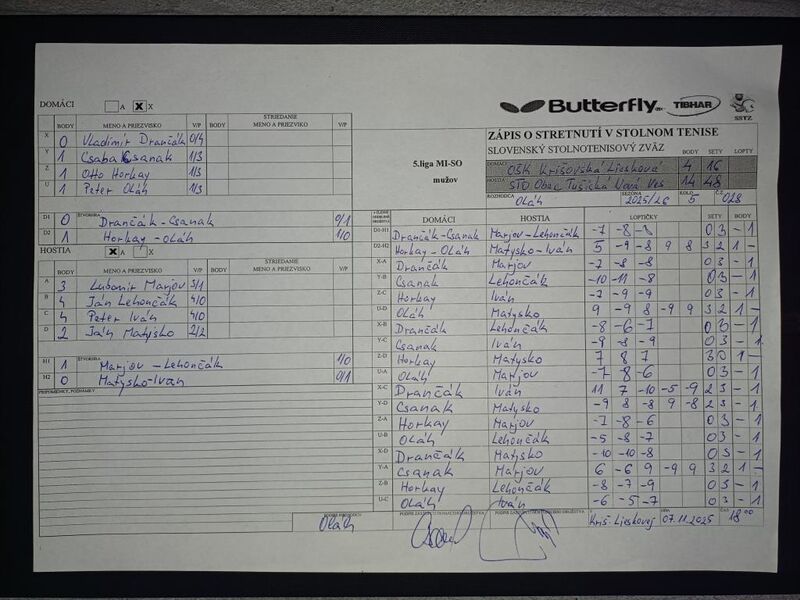 DOMÁCI A X X
Butterfly TIBHAR SSTZ
ZÁPIS O STRETNUTÍ V STOLNOM TENISE
SLOVENSKÝ STOLNOTENISOVÝ ZVÄZ BODY SETY LOPTY
5.liga MI-SO
mužov
DOMÁCI OŠK Krišovská Liesková 4 16
HOSTIA STO Obec Tušická Nová Ves 14 48
ROZHODCA Oláh SEZÓNA 2025/26 KOLO 5 Č. 028
BODY MENO A PRIEZVISKO V/P BODY STRIEDANIE MENO A PRIEZVISKO V/P
X 0 Vladimír Drančák 0/4
Y 1 Csaba Csanak 1/3
Z 1 Otto Horkay 1/3
U 1 Peter Oláh 1/3
D1 0 ŠTVORHRA Drančák-Csanak 0/1
D2 1 Horkay-Oláh 1/0
HOSTIA X A
BODY MENO A PRIEZVISKO V/P BODY STRIEDANIE MENO A PRIEZVISKO V/P
A 3 Ľubomír Marjov 3/1
B 4 Ján Lehončák 4/0
C 4 Peter Iván 4/0
D 2 Ján Matysko 2/2
H1 1 ŠTVORHRA Marjov-Lehončák 1/0
H2 0 Matysko-Iván 0/1
PRIPOMIENKY, POZNÁMKY
DOMÁCI HOSTIA LOPTIČKY SETY BODY
D1-H1 Drančák-Csanak Marjov-Lehončák -7 -8 -8 0 3 - 1
D2-H2 Horkay-Oláh Matysko-Iván 5 -9 -8 9 8 3 2 1 -
X-A Drančák Marjov -7 -8 -8 0 3 - 1
Y-B Csanak Lehončák -10 -11 -8 0 3 - 1
Z-C Horkay Iván -7 -9 -9 0 3 - 1
U-D Oláh Matysko 9 -9 8 -9 9 3 2 1 -
X-B Drančák Lehončák -8 -6 -7 0 3 - 1
Y-C Csanak Iván -9 -8 -9 0 3 - 1
Z-D Horkay Matysko 7 8 7 3 0 1 -
U-A Oláh Marjov -7 -8 -6 0 3 - 1
X-C Drančák Iván 11 7 -10 -5 -9 2 3 - 1
Y-D Csanak Matysko -9 8 -8 9 -8 2 3 - 1
Z-A Horkay Marjov -7 -8 -6 0 3 - 1
U-B Oláh Lehončák -5 -8 -7 0 3 - 1
X-D Drančák Matysko -10 -10 -8 0 3 - 1
Y-A Csanak Marjov 6 -6 9 -9 9 3 2 1 -
Z-B Horkay Lehončák -8 -7 -9 0 3 - 1
U-C Oláh Iván -6 -5 -7 0 3 - 1
PODPIS ROZHODCU Oláh
Kriš. Lieskovej DŇA 07.11.2025 ČAS 18 00